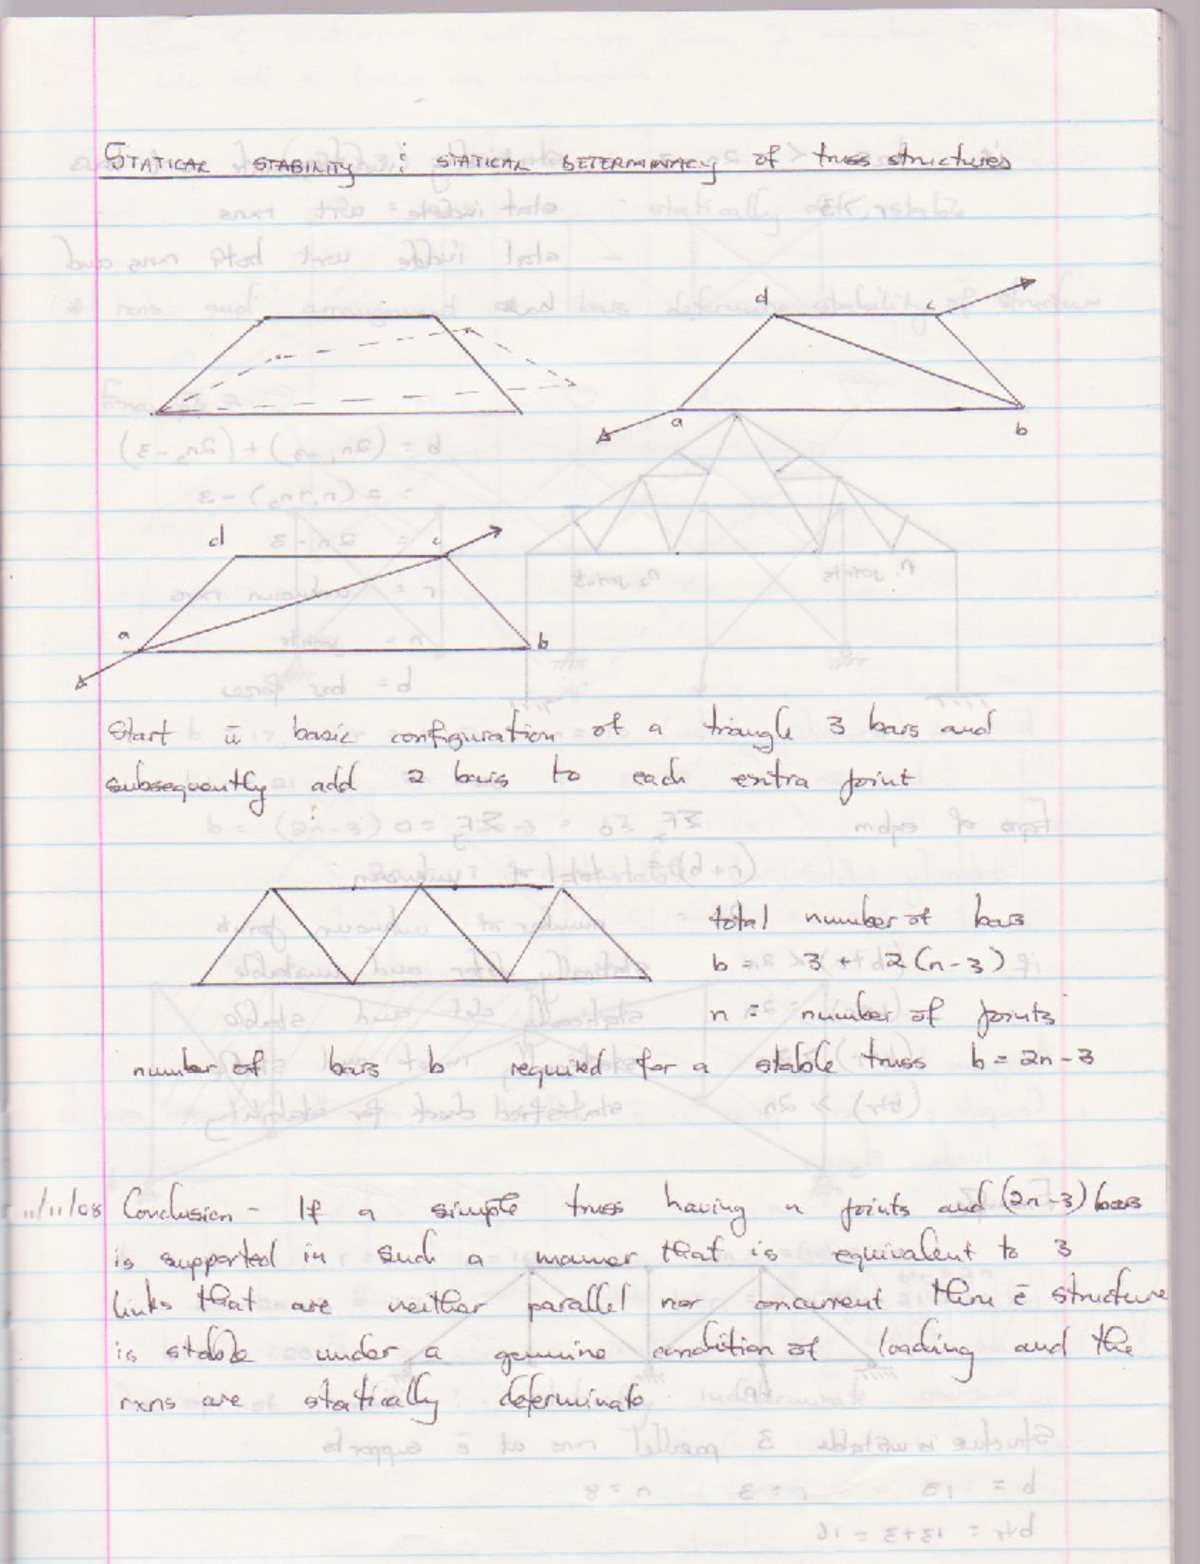 STATICAL STABILITY : STATICAL DETERMINACY of truss structures
d c
a b
d c
a b
Start ū basic configuration of a triangle 3 bars and
subsequently add 2 bars to each extra joint
total number of bars
b = 3 + 2(n-3)
n = number of joints
number of bars b required for a stable truss b = 2n-3
11/11/08 Conclusion - If a simple truss having n joints and (2n-3) bars
is supported in such a manner that is equivalent to 3
links that are neither parallel nor concurrent then ē structure
is stable under a genuine condition of loading and the
rxns are statically determinate